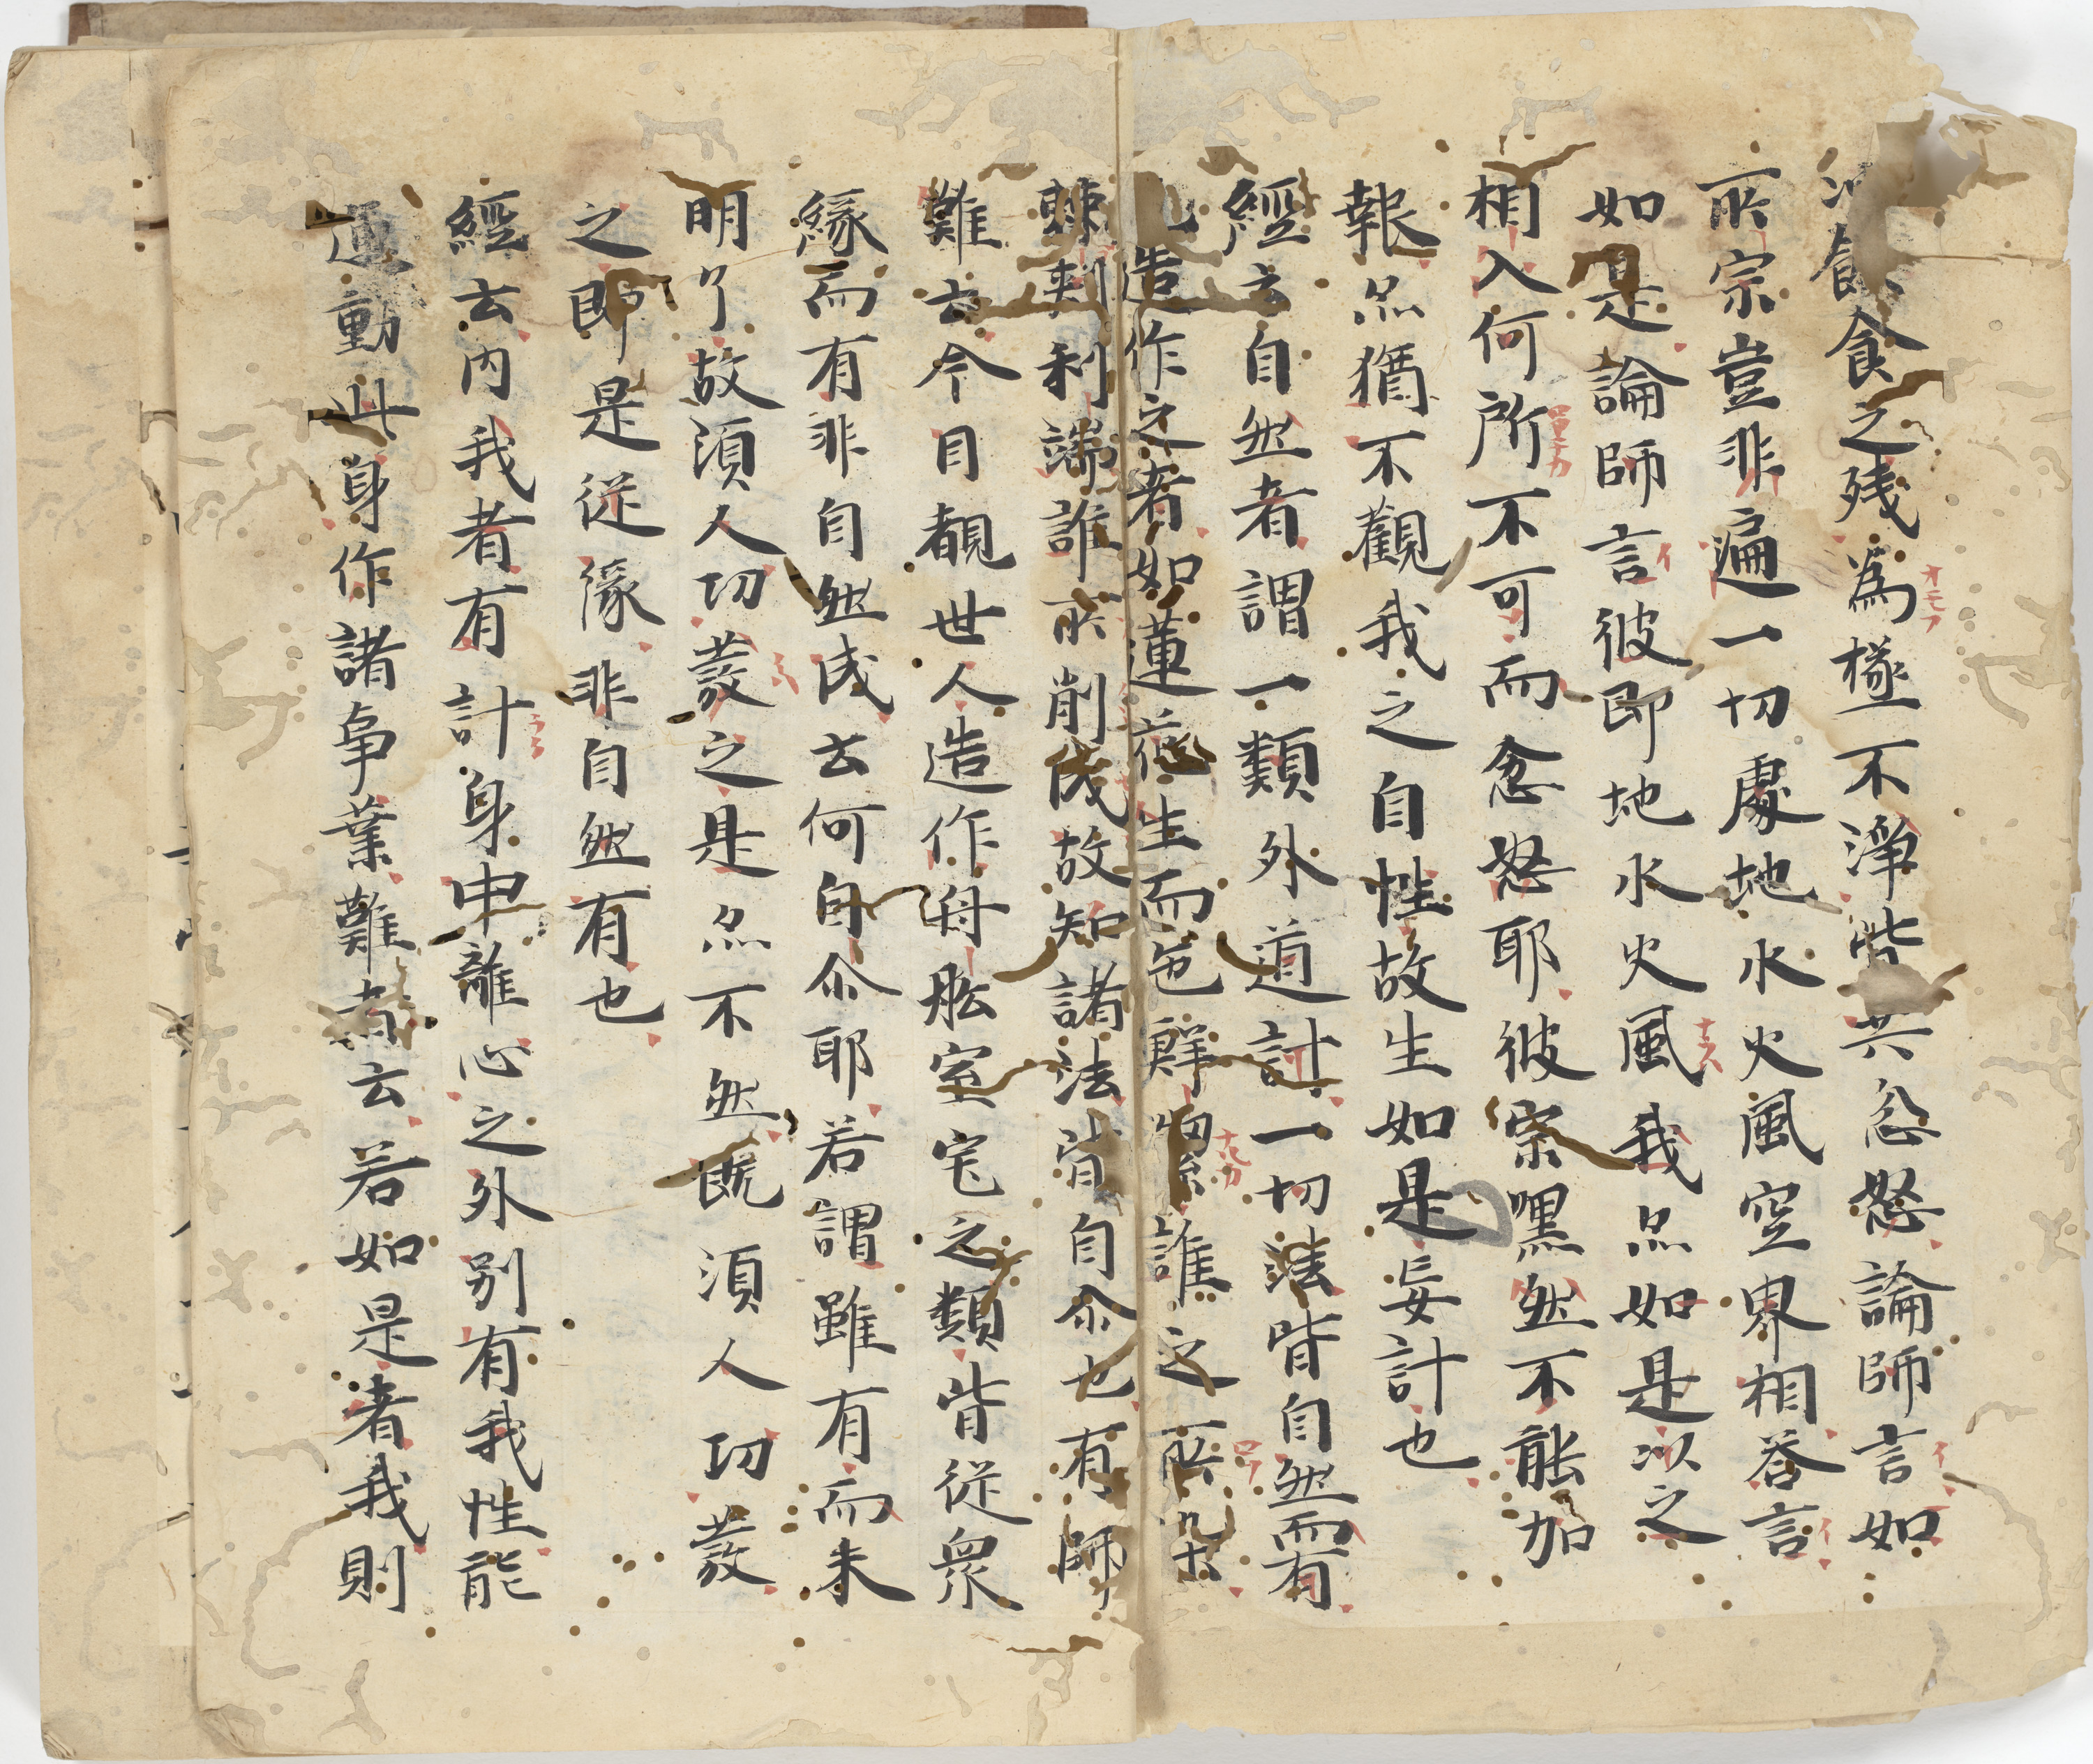 食之残為極不淨此共忿怒論師言如
所宗豈非遍一切處地水火風空界相荅言
如是論師言彼即地水火風我亦如是以之
相入何所不可而忿怒耶彼宗嘿然不能加
報然猶不觀我之自性故生如是妄計也
經云自然者謂一類外道計一切法皆自然而有
造作之者如蓮花生而色鮮潔誰之所染
棘刺利端誰所削成故知諸法皆自尒也有師
難云今目覩世人造作舟舩室宅之類皆從衆
緣而有非自然成云何自尒耶若謂雖有而未
明了故須人功發之是亦不然既須人功發
之即是從緣非自然有也
經云内我者有計身中離心之外別有我性能
運動此身作諸事業難者云若如是者我則